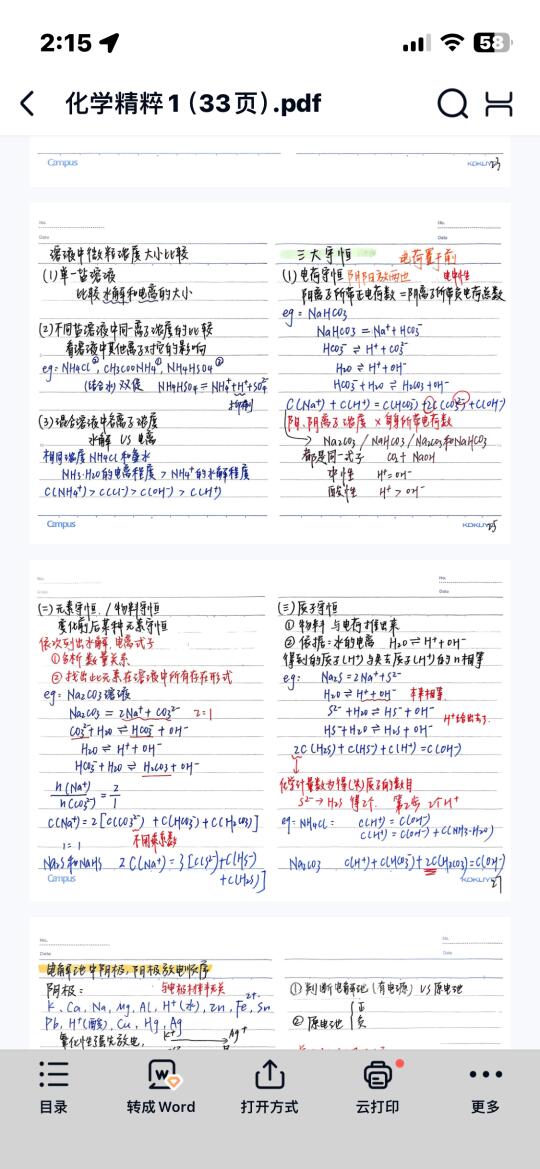 2:15
58
化学精粹1(33页).pdf
Campus
KOKUYO
No.
Date
溶液中微粒浓度大小比较
(1)单一盐溶液
比较水解和电离的大小
(2)不同盐溶液中同一离子浓度的比较
看溶液中其他离子对它的影响
eg:NH₄Cl①, CH₃COONH₄②, NH₄HSO₄③
(结合水)双促 NH₄HSO₄=NH₄⁺+H⁺+SO₄²⁻
抑制
(3)混合溶液中各离子浓度
水解 VS 电离
相同浓度NH₄Cl和氨水
NH₃·H₂O的电离程度 > NH₄⁺的水解程度
C(NH₄⁺)>C(Cl⁻)>C(OH⁻)>C(H⁺)
Campus
No.
Date
三大守恒
电荷置于前
(1)电荷守恒 阴阳放两边 电中性
阳离子所带正电荷数=阴离子所带负电荷总数
eg:NaHCO₃
NaHCO₃=Na⁺+HCO₃⁻
HCO₃⁻⇌H⁺+CO₃²⁻
H₂O⇌H⁺+OH⁻
HCO₃⁻+H₂O⇌H₂CO₃+OH⁻
C(Na⁺)+C(H⁺)=C(HCO₃⁻)+2C(CO₃²⁻)+C(OH⁻)
阴、阳离子浓度×自身所带电荷数
Na₂CO₃/NaHCO₃/Na₂CO₃和NaHCO₃
都是同一式子 CO₂+NaOH
中性 H⁺=OH⁻
酸性 H⁺>OH⁻
KOKUYO 25
No.
Date
(二)元素守恒/物料守恒
变化前后某种元素守恒
依次列出水解,电离式子
①分析数量关系
②找出此元素在溶液中所有存在形式
eg:Na₂CO₃溶液
Na₂CO₃=2Na⁺+CO₃²⁻ 2:1
CO₃²⁻+H₂O⇌HCO₃⁻+OH⁻
H₂O⇌H⁺+OH⁻
HCO₃⁻+H₂O⇌H₂CO₃+OH⁻
n(Na⁺)/n(CO₃²⁻)=2/1
C(Na⁺)=2[C(CO₃²⁻)+C(HCO₃⁻)+C(H₂CO₃)]
1:1 不用乘系数
Na₂S和NaHS 2C(Na⁺)=3[C(S²⁻)+C(HS⁻)
+C(H₂S)]
Campus
No.
Date
(三)质子守恒
①物料与电荷推出来
②依据:水的电离 H₂O⇌H⁺+OH⁻
得到的质子(H⁺)与失去质子(H⁺)的n相等
eg: Na₂S=2Na⁺+S²⁻
H₂O⇌H⁺+OH⁻ 本来相等
S²⁻+H₂O⇌HS⁻+OH⁻ H⁺给出去了
HS⁻+H₂O⇌H₂S+OH⁻
2C(H₂S)+C(HS⁻)+C(H⁺)=C(OH⁻)
化学计量数为得(失)质子的数目
S²⁻→H₂S 得2个 第2步 2个H⁺
eg:NH₄Cl: C(H⁺)=C(OH⁻)
C(H⁺)=C(OH⁻)+C(NH₃·H₂O)
Na₂CO₃ C(H⁺)+C(HCO₃⁻)+2C(H₂CO₃)=C(OH⁻)
KOKUYO 27
No.
Date
电解池中阴极,阳极放电顺序
阴极: 与电极材料无关
K、Ca、Na、Mg、Al、H⁺(水)、Zn、Fe²⁺、Sn
Pb、H⁺(酸)、Cu、Hg、Ag
氧化性强先放电, K⁺ → Ag⁺
No.
Date
①判断电解池(有电源)VS原电池
②原电池 正
负
目录
转成Word
打开方式
云打印
更多